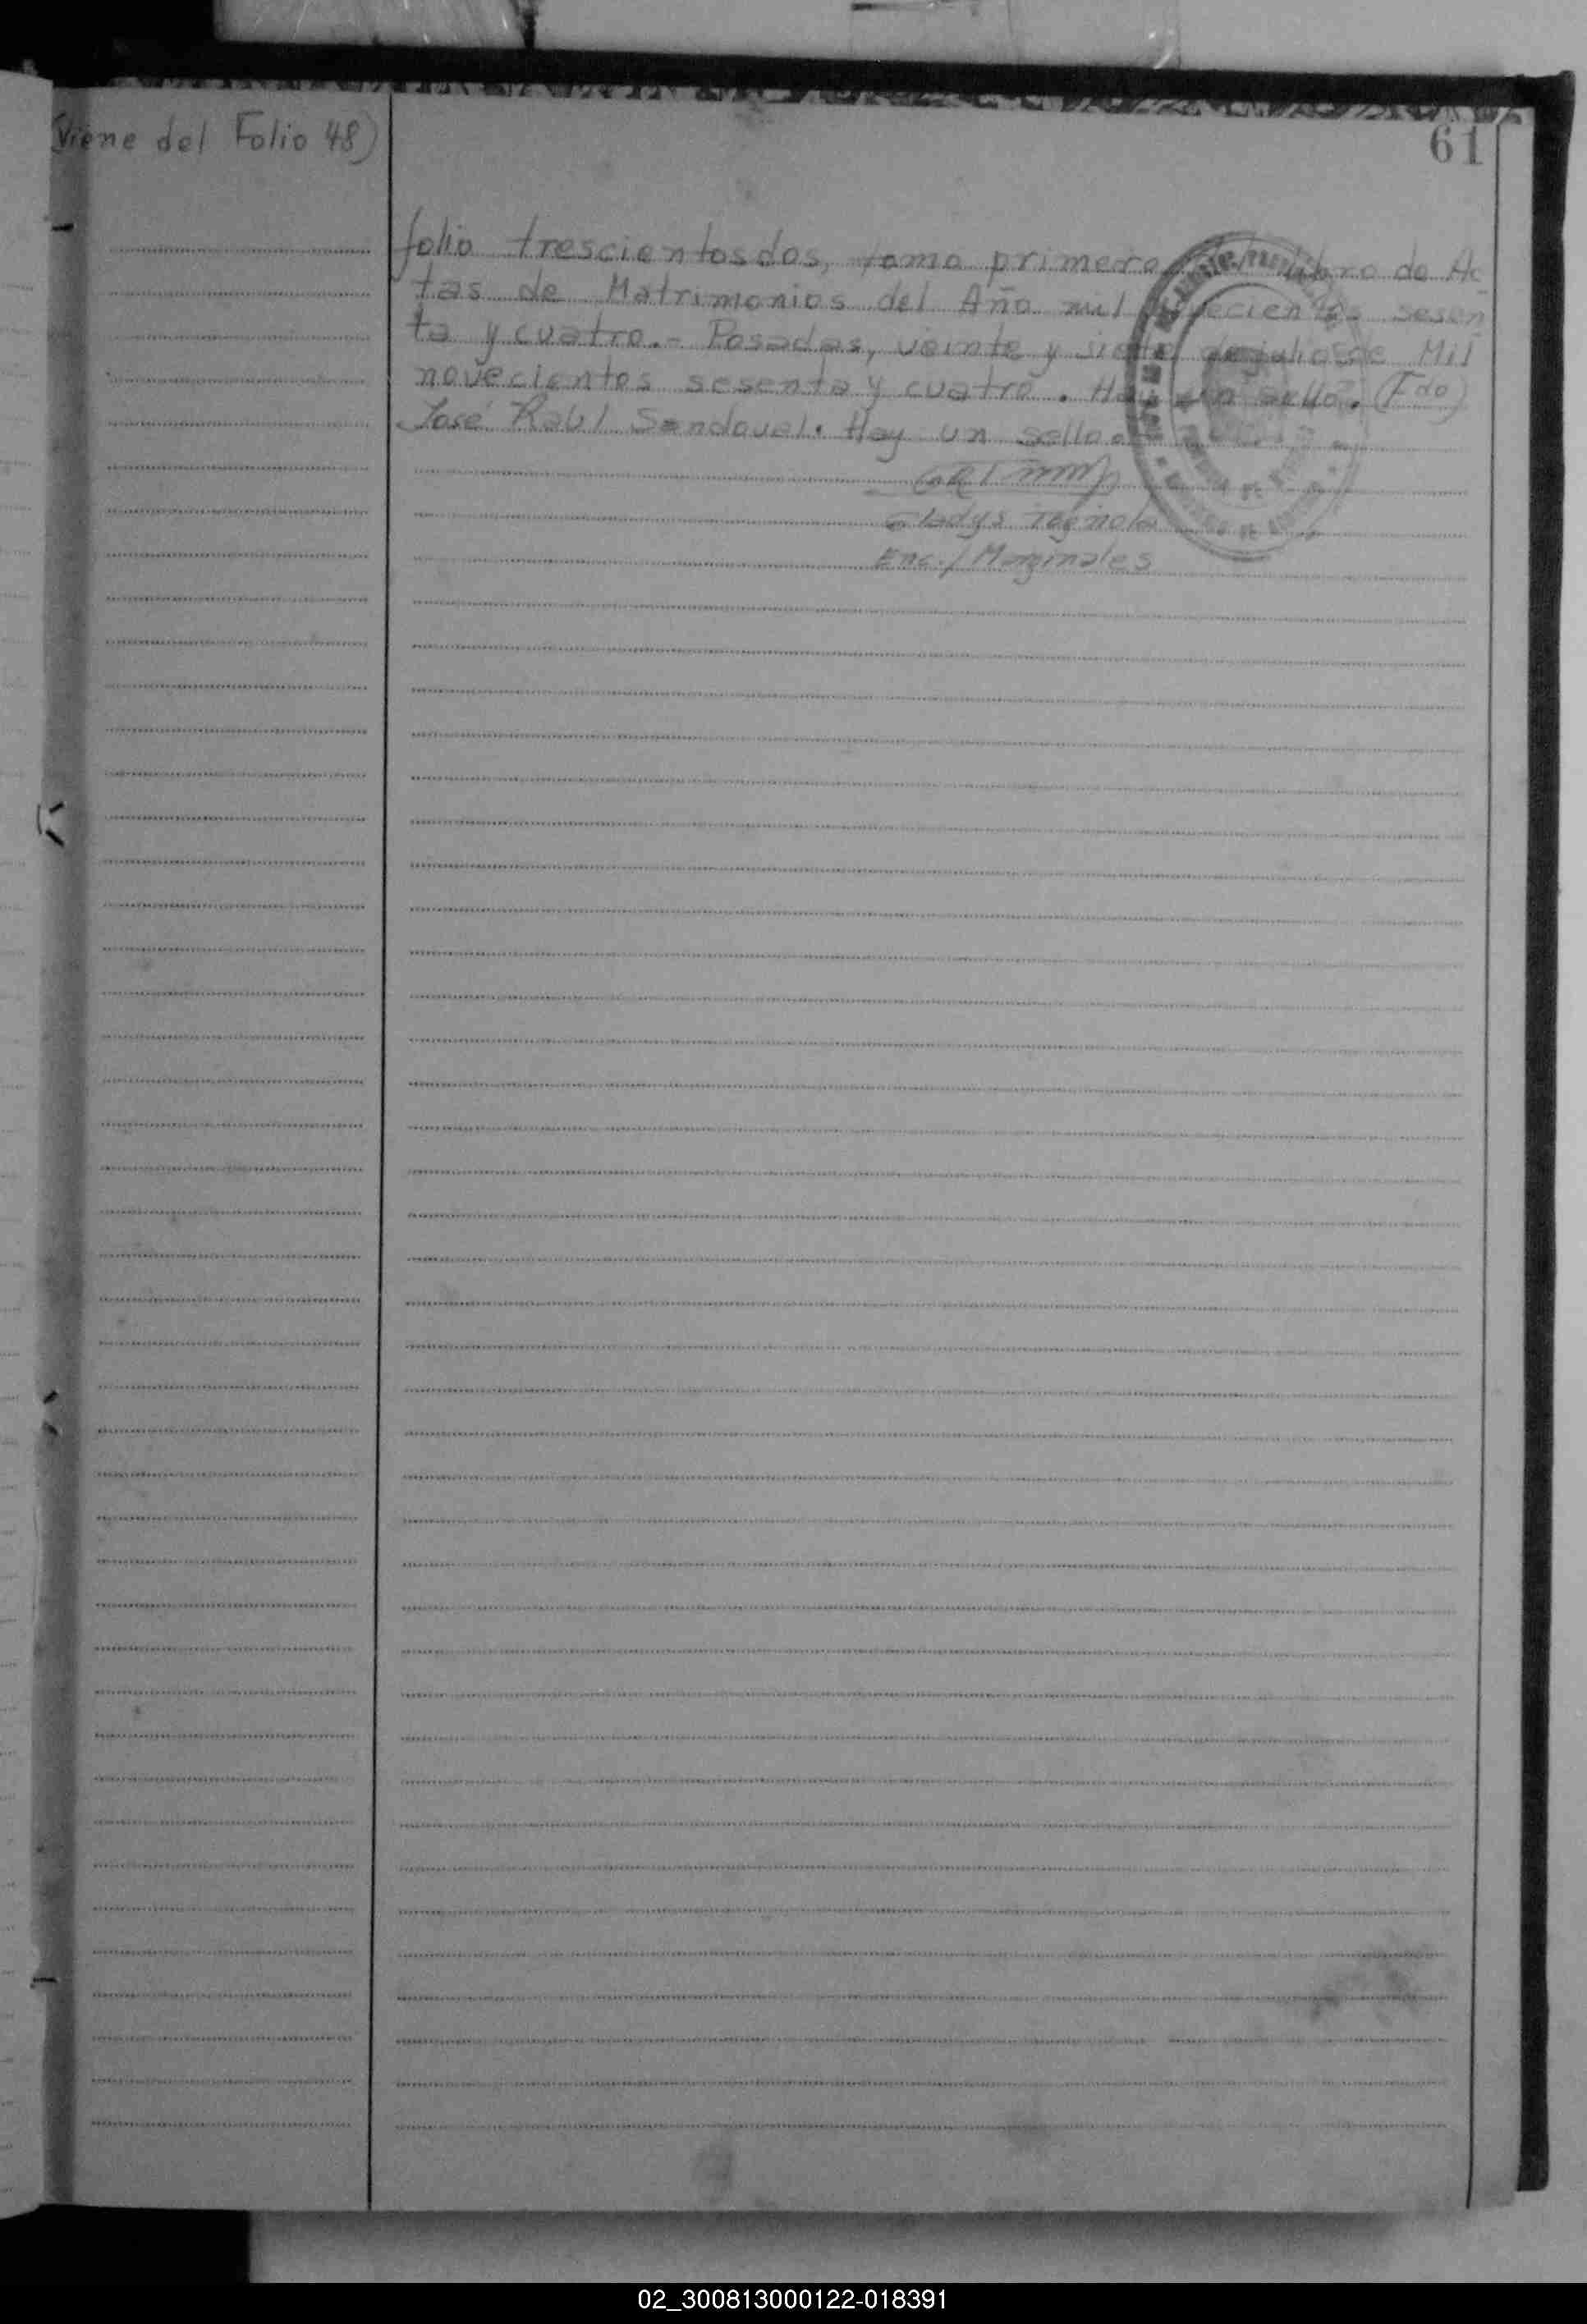 (Viene del Folio 48)
61
folio trescientos dos, tomo primero, libro de Ac
tas de Matrimonios del Año mil novecientos sesen
ta y cuatro.- Posadas, veinte y siete de julio de Mil
novecientos sesenta y cuatro. Hay un sello. (Fdo)
José Raúl Sandoval. Hay un sello.
Gladys
Enc./ Marginales
02_300813000122-018391